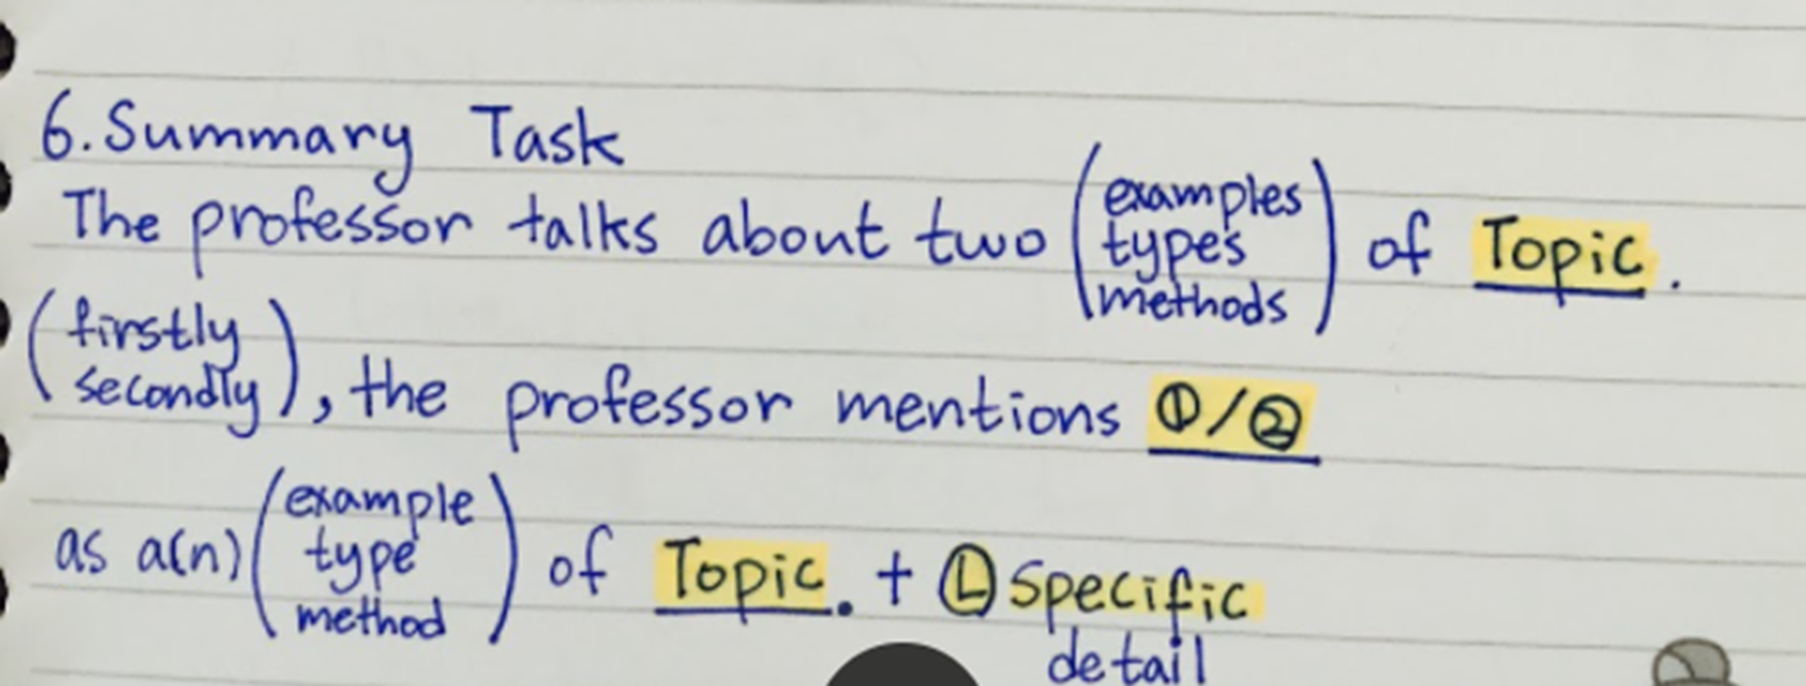 6. Summary Task
The professor talks about two (examples types methods) of Topic.
(firstly secondly), the professor mentions ①/②
as a(n) (example type method) of Topic. + Ⓛ Specific
detail